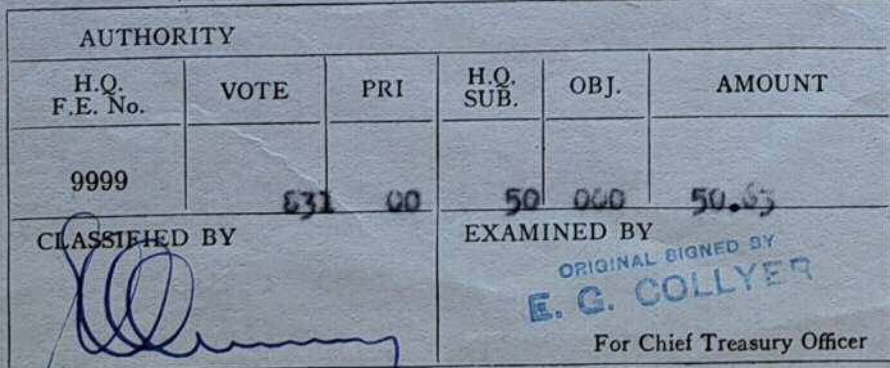 AUTHORITY
H.Q. F.E. No. VOTE PRI H.Q. SUB. OBJ. AMOUNT
9999 831 00 50 000 50.63
CLASSIFIED BY EXAMINED BY
ORIGINAL SIGNED BY
E. G. COLLYER
For Chief Treasury Officer